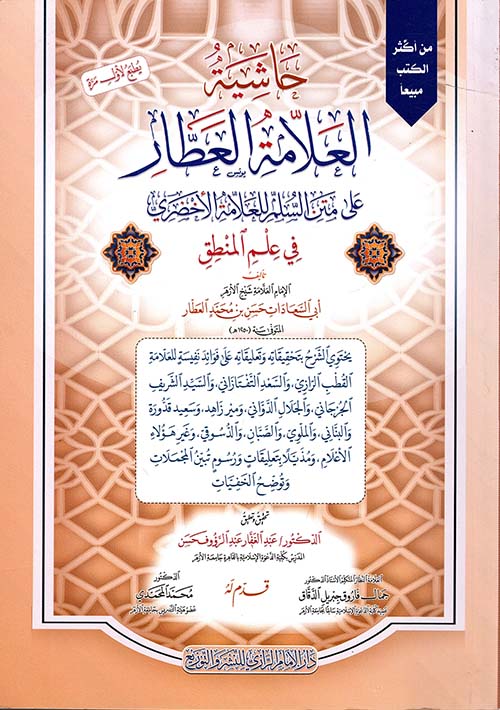 من أكثر
الكتب
مبيعاً
يطبع لأول مرة
حاشية
العلامة العطار
على متن السلم للعلامة الأخضري
في علم المنطق
تأليف
الإمام العلامة شيخ الأزهر
أبي السعادات حسن بن محمد العطار
المتوفى سنة (١٢٥٠هـ)
يحتوي الشرح بتحقيقاته وتعليقاته على فوائد نفيسة للعلامة
القطب الرازي، والسعد التفتازاني، والسيد الشريف
الجرجاني، والجلال الدواني، ومير زاهد، وسعيد قدورة
والبناني، والملوي، والصبان، والدسوقي، وغير هؤلاء
الأعلام، ومذيلا بتعليقات ورسوم تبين المجملات
وتوضح الخفيات
تحقيق وتعليق
الدكتور/ عبد الغفار عبد الرؤوف حسن
المدرس بكلية الدعوة الإسلامية بالقاهرة جامعة الأزهر
قدم له
العلامة النظار المتكلم الأستاذ الدكتور
جمال فاروق جبريل الدقاق
عميد كلية الدعوة الإسلامية سابقا بجامعة الأزهر
الدكتور
محمد المحمدي
عضو هيئة التدريس بجامعة الأزهر
دار الإمام الرازي للنشر والتوزيع